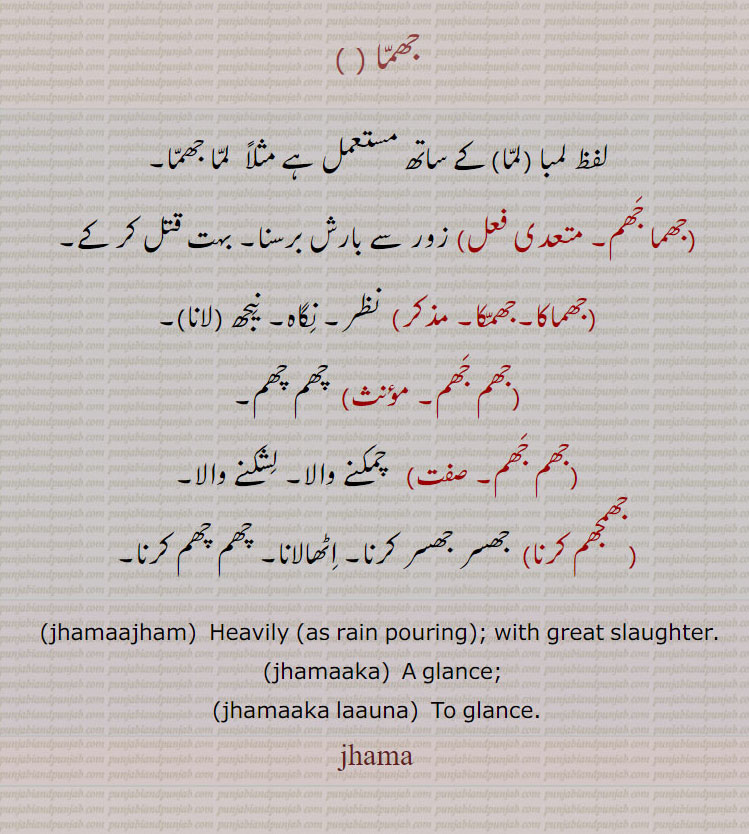 جھمّا ( )
لفظ لمبا (لمّا) کے ساتھ مستعمل ہے مثلاً لمّا جھمّا۔
(جھما جَھم۔ متعدی فعل) زور سے بارش برسنا۔ بہت قتل کر کے۔
(جھماکا۔جھمّکا۔ مذکر) نظر۔ نِگاہ۔ نِیجھ (لانا)۔
(جھم جَھم۔ مؤنث) چھم چھم۔
(جھم جَھم۔ صفت) چمکنے والا۔ لِشکنے والا۔
(جھمجھم کرنا) جھسر جھسر کرنا۔ اِٹھالانا۔ چھم چھم کرنا۔
(jhamaajham) Heavily (as rain pouring); with great slaughter.
(jhamaaka) A glance;
(jhamaaka laauna) To glance.
jhama